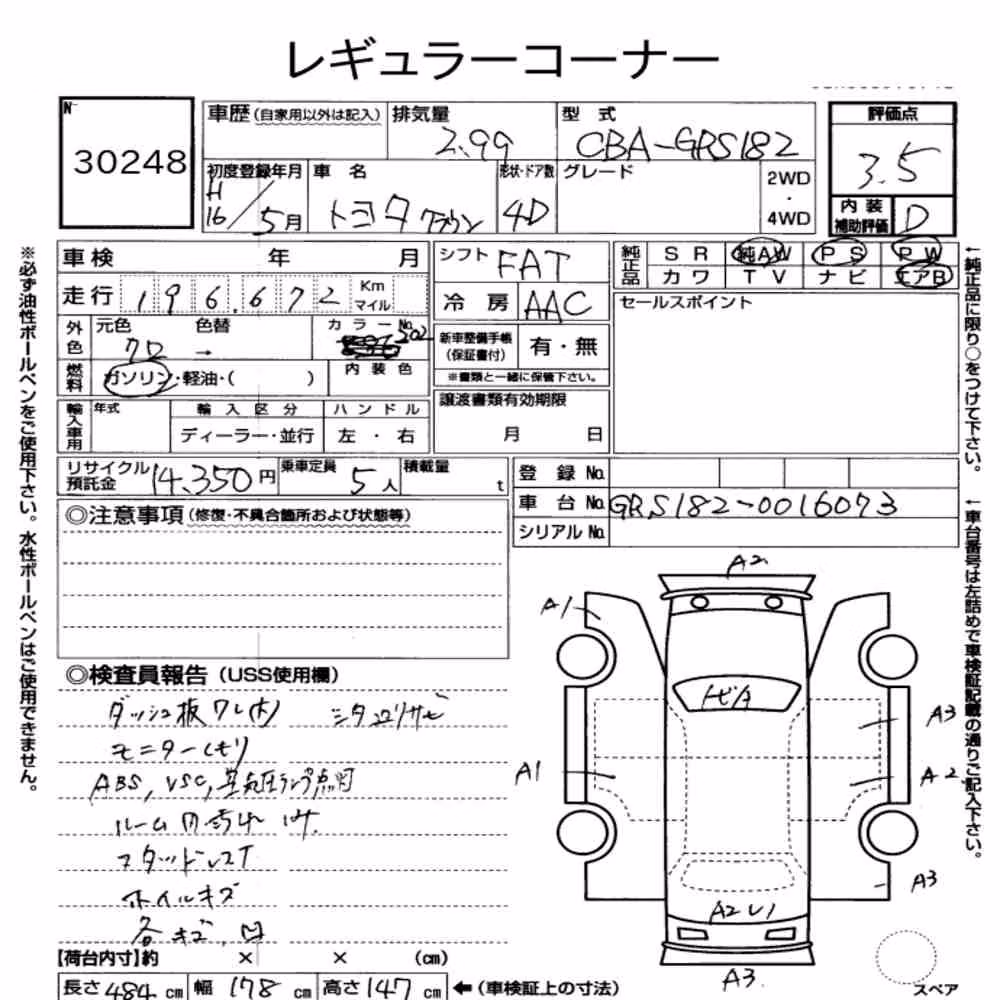 レギュラーコーナー
№ 30248
車歴(自家用以外は記入) 排気量 2.99 型 式 CBA-GRS182
評価点 3.5
内 装 補助評価 D
初度登録年月 H16/5月 車 名 トヨタ クラウン 形状・ドア数 4D グレード 2WD・4WD
車検 年 月
走行 196.672 Km マイル
外色 元色 クロ 色替 → カラーNo. 202
燃料 ガソリン・軽油・( ) 内装色
輸入車用 年式 輸入区分 ハンドル
ディーラー・並行 左・右
シフト FAT
冷房 AAC
新車整備手帳(保証書付) 有・無
※書類と一緒に保管下さい。
譲渡書類有効期限
月 日
純正品 SR 純AW PS PW
カワ TV ナビ エアB
セールスポイント
リサイクル預託金 14,350円 乗車定員 5人 積載量 t
登録No.
車台No. GRS182-0016073
シリアルNo.
◎注意事項(修復・不具合箇所および状態等)
◎検査員報告(USS使用欄)
ダッシュ板ワレ(大) シタ廻りサビ
モニター(モリ)
ABS, VSC, 空気圧ランプ点灯
ルーム
スタッドレスT
ホイルキズ
各キズ, 凹
【荷台内寸】約 × × (cm)
長さ 484 cm 幅 178 cm 高さ 147 cm ←(車検証上の寸法)
A2
A1
トビA
A3
A1
A2
A3
A3
スペア
※必ず油性ボールペンをご使用下さい。水性ボールペンはご使用できません。
←純正品に限り○をつけて下さい。
←車台番号は左詰めで車検証記載の通りご記入下さい。